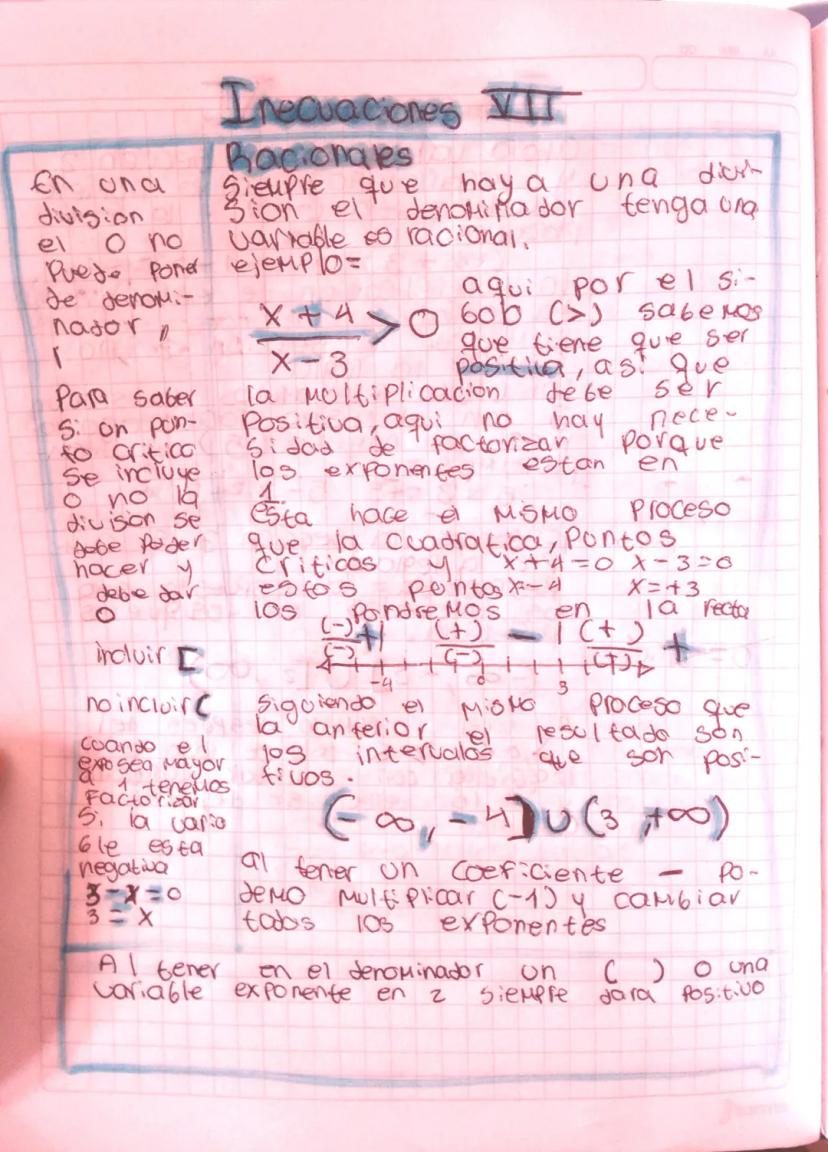 Inecuaciones VII
En una
division
el 0 no
Puede poner
de denomi-
nador,,
Para saber
si un pun-
to critico
se incluye
o no la
division se
debe Poder
hacer y
debe dar
0
incluir [
no incluir (
cuando el
expo sea mayor
a 1 tenemos
Factorizar
Si la varia
ble esta
negativa
3 - x = 0
3 = x
Racionales
Siempre que haya una divi-
sion el denominador tenga una
variable es racional.
ejemplo=
x + 4 / x - 3 > 0
aqui por el si-
bob (>) sabemos
que tiene que ser
positiva, asi que
la multiplicacion debe ser
Positiva, aqui no hay nece-
sidad de factorizar porque
los exponentes estan en
1.
esta hace el mismo proceso
que la cuadratica, puntos
criticos y x+4=0 x-3=0
estos puntos x-4 x=+3
los pondremos en la recta
(-)/(-) + | (+)/(-) - | (+)/(+) +
-4 0 3
Siguiendo el mismo proceso que
la anterior el resultado son
los intervalos que son posi-
tivos.
(-∞, -4) ∪ (3, +∞)
al tener un coeficiente - po-
demo multiplicar (-1) y cambiar
todos los exponentes
Al tener en el denominador un ( ) o una
variable exponente en 2 siempre dara positivo